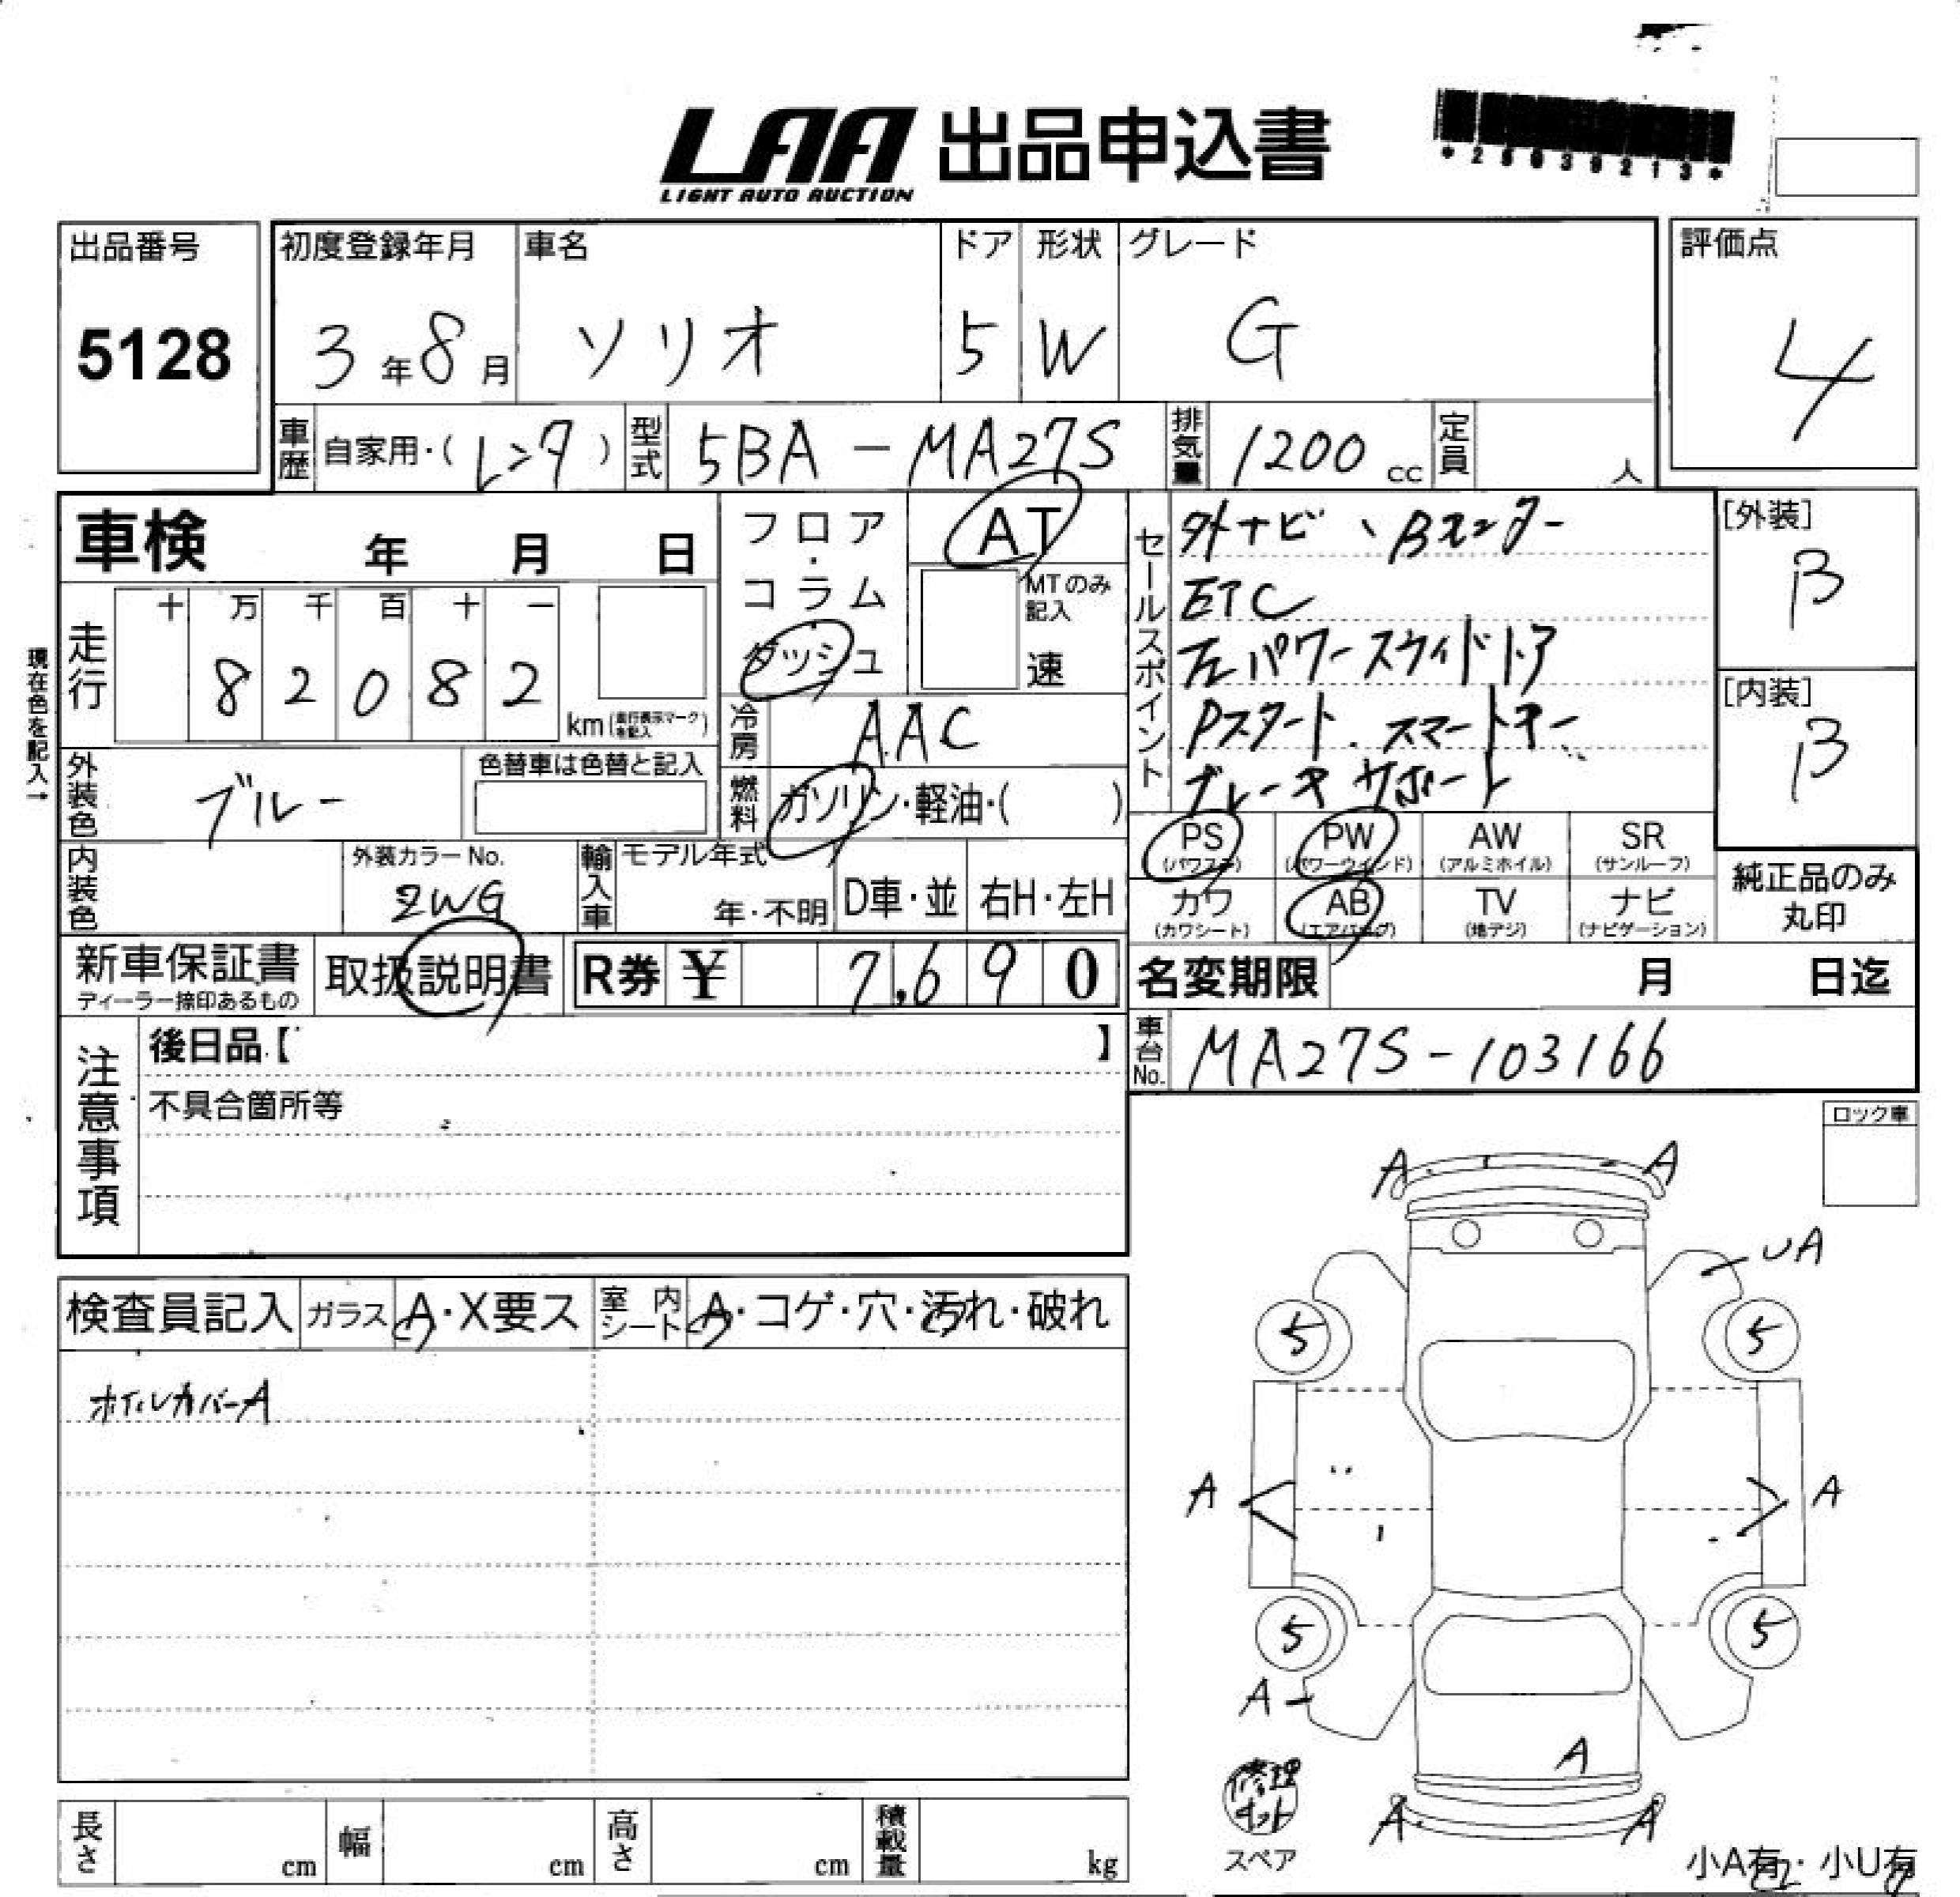 LAA 出品申込書
LIGHT AUTO AUCTION
*25039213*
出品番号
5128
初度登録年月
3年8月
車名
ソリオ
ドア
5
形状
W
グレード
G
評価点
4
車歴 自家用・(レンタ)
型式 5BA-MA27S
排気量 1200cc
定員 人
車検 年 月 日
現在色を記入→
走行
十 万 千 百 十 一
8 2 0 8 2
km(走行表示マークを記入)
フロア・コラム
ダッシュ
AT
MTのみ記入
速
冷房 AAC
燃料 ガソリン・軽油・( )
外装色 ブルー
色替車は色替と記入
内装色
外装カラーNo.
ZWG
輸入車
モデル年式
年・不明
D車・並
右H・左H
セールスポイント
外ナビ、Bカメラー
ETC
左パワースライドドア
Pスタート.スマートキー
ブレーキサポート
[外装]
B
[内装]
B
PS(パワステ) PW(パワーウィンド) AW(アルミホイル) SR(サンルーフ)
カワ(カワシート) AB(エアバッグ) TV(地デジ) ナビ(ナビゲーション)
純正品のみ丸印
新車保証書
ディーラー捺印あるもの
取扱説明書
R券 ¥ 7,690
名変期限 月 日迄
車台No. MA27S-103166
注意事項
後日品【 】
不具合箇所等
ロック車
検査員記入 ガラス A・X要ス 室内シート A・コゲ・穴・汚れ・破れ
ホイルカバーA
A A
UA
5 5
A A
5 5
A
A
A A
修理キット
スペア
小A有・小U有
長さ cm 幅 cm 高さ cm 積載量 kg